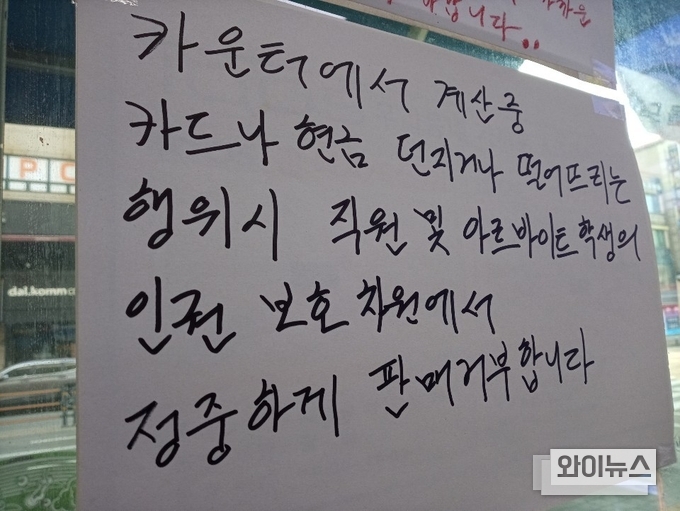 합니다..
카운터에서 계산중
카드나 현금 던지거나 떨어뜨리는
행위시 직원 및 아르바이트학생의
인권 보호 차원에서
정중하게 판매거부합니다
PC
dal.komm
와이뉴스